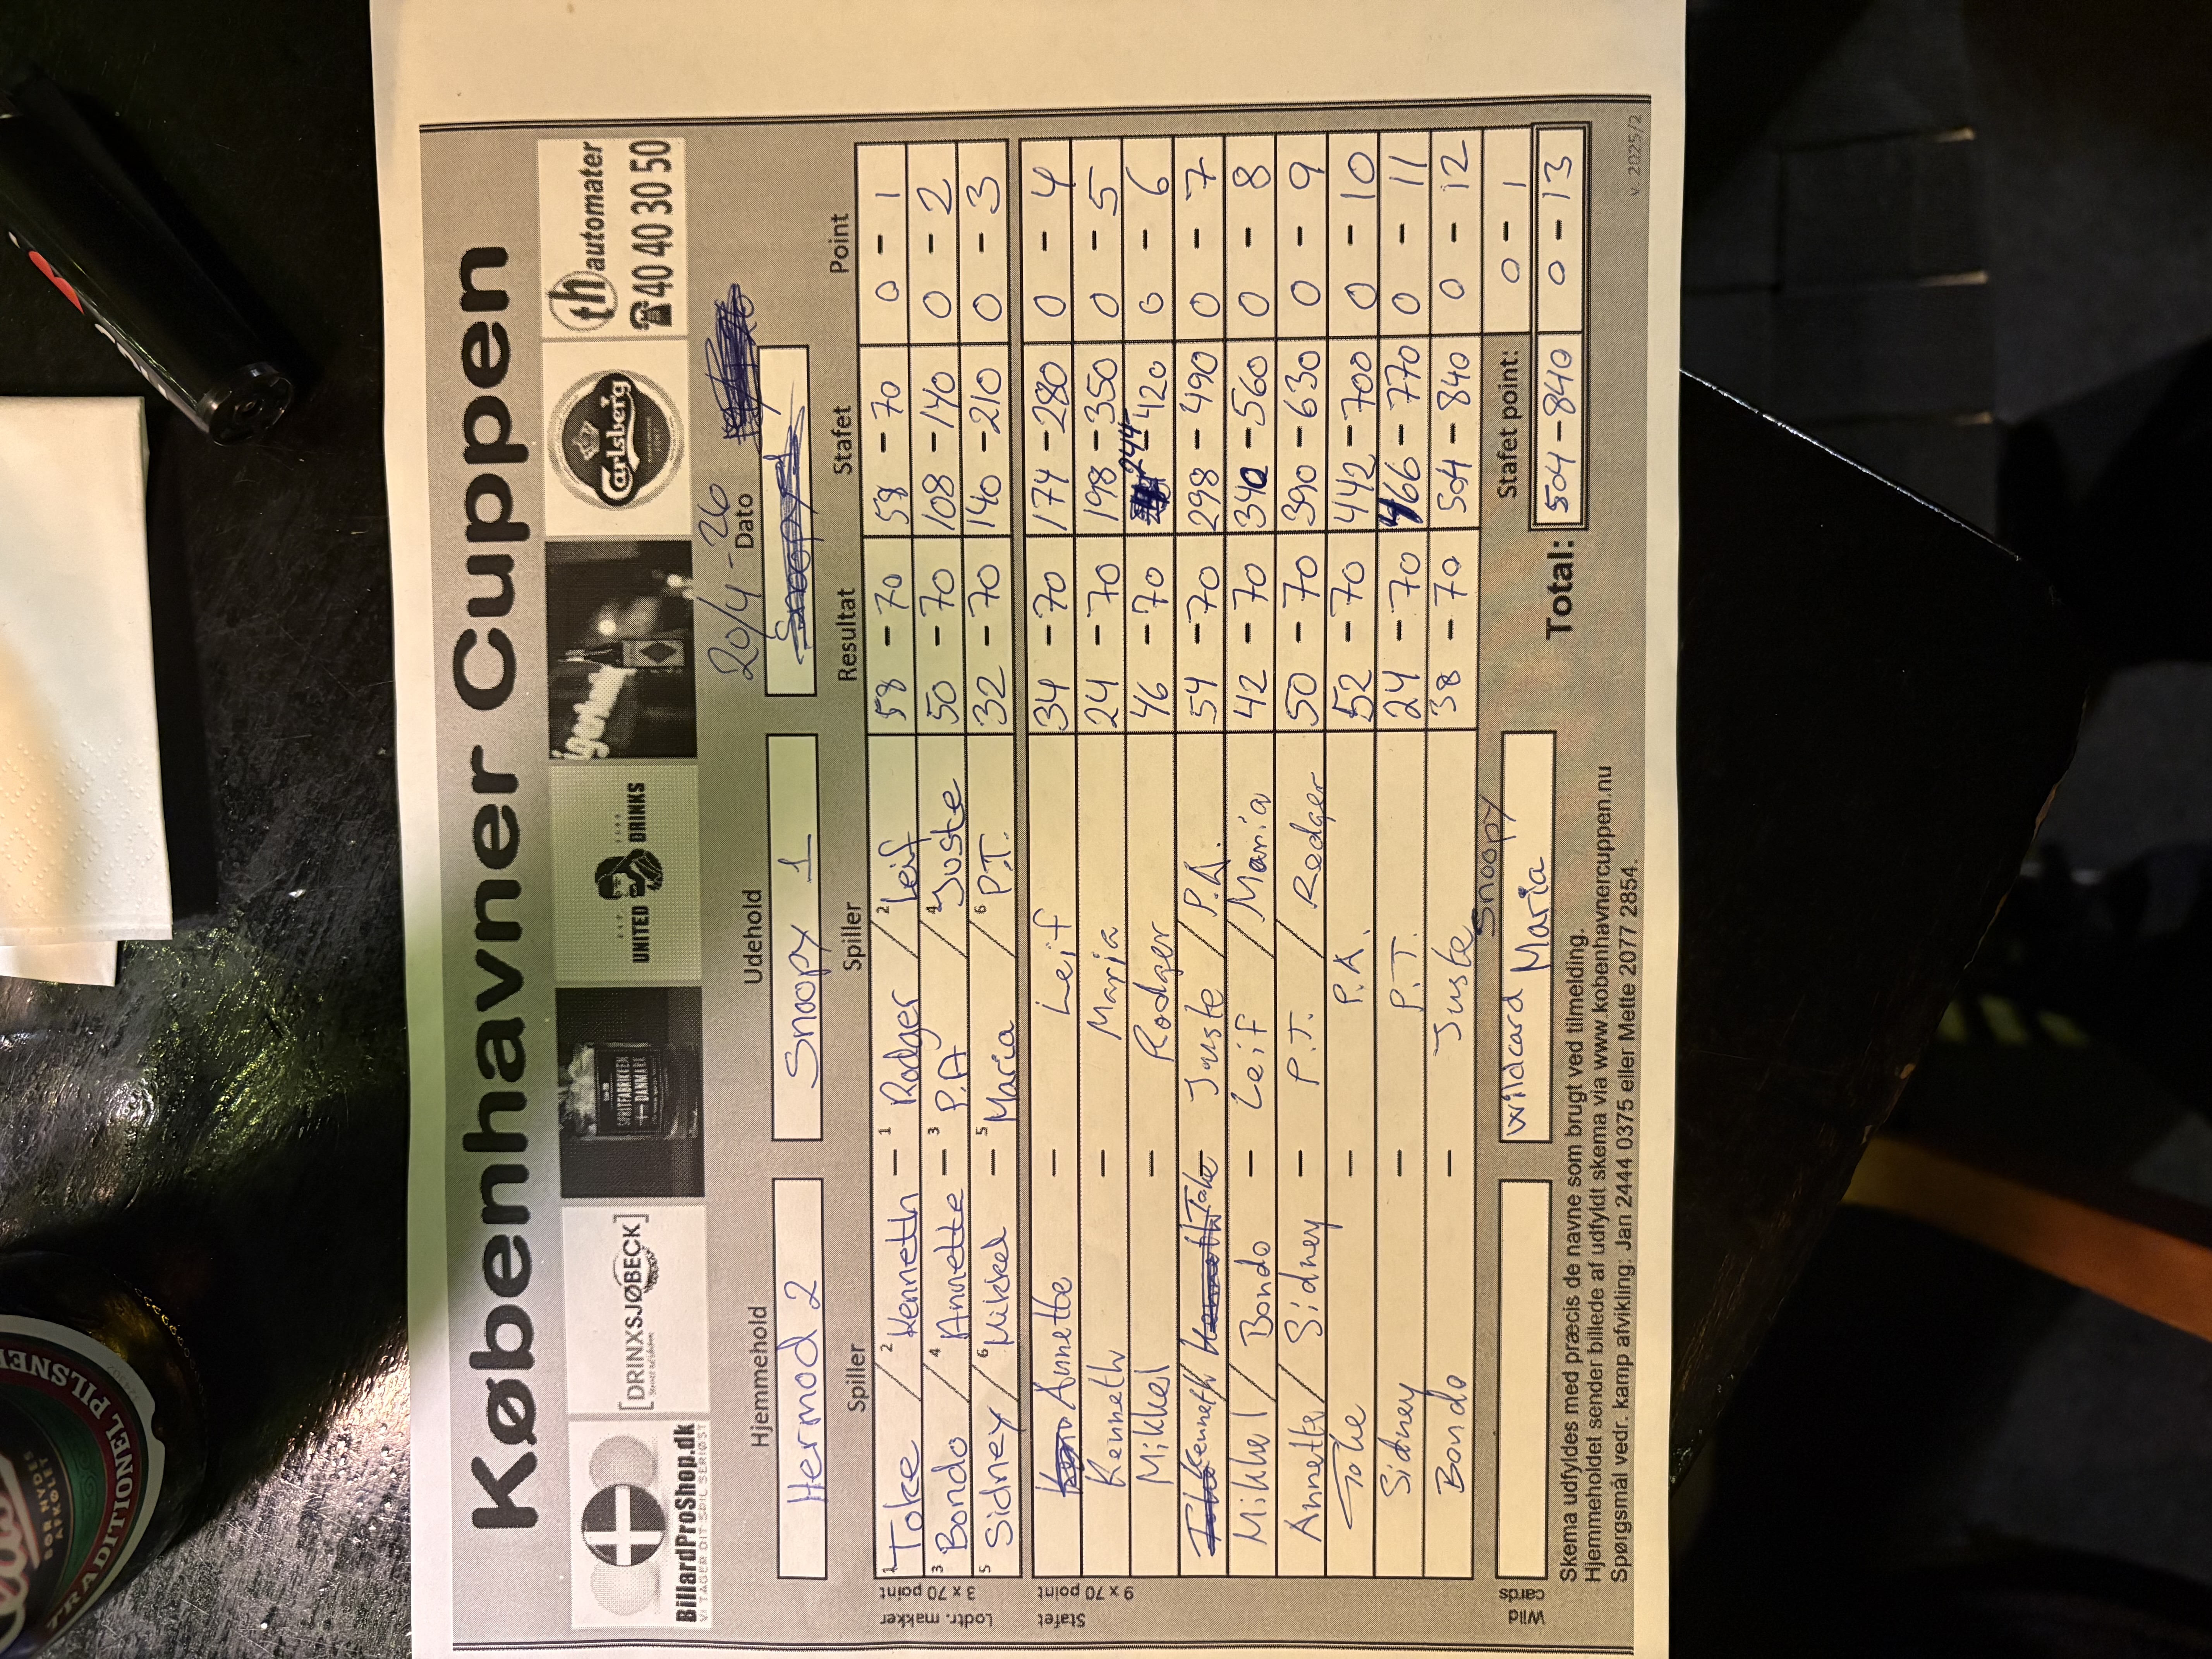 Københavner Cuppen
BillardProShop.dk
VI TAGER DIT SPIL SERIØST
[DRINXSJØBECK]
SPRITFABRIKKEN
DANMARK
UNITED DRINKS
Carlsberg
th automater
☎ 40 40 30 50
20/4-26
Hjemmehold Udehold Dato
Hermod 2 Snoopy 1 Snoopy 1
Spiller Spiller Resultat Stafet Point
Lodtr. makker
3 x 70 point
1 Toke / 2 Kenneth – 1 Rodger / 2 Leif 58 – 70 58 – 70 0 – 1
3 Bondo / 4 Annette – 3 P.A / 4 Juste 50 – 70 108 – 140 0 – 2
5 Sidney / 6 Mikkel – 5 Maria / 6 P.T. 32 – 70 140 – 210 0 – 3
Stafet
9 x 70 point
Annette – Leif 34 – 70 174 – 280 0 – 4
Kenneth – Maria 24 – 70 198 – 350 0 – 5
Mikkel – Rodger 46 – 70 244 – 420 0 – 6
Kenneth Toke – Juste / P.A. 54 – 70 298 – 490 0 – 7
Mikkel / Bondo – Leif / Maria 42 – 70 340 – 560 0 – 8
Annette / Sidney – P.T. / Redger 50 – 70 390 – 630 0 – 9
Toke – P.A. 52 – 70 442 – 700 0 – 10
Sidney – P.T. 24 – 70 466 – 770 0 – 11
Bondo – Juste 38 – 70 504 – 840 0 – 12
Snoopy
Wild cards
wildcard Maria
Stafet point: 0 – 1
Total: 504 – 840 0 – 13
Skema udfyldes med præcis de navne som brugt ved tilmelding.
Hjemmeholdet sender billede af udfyldt skema via www.kobenhavnercuppen.nu
Spørgsmål vedr. kamp afvikling: Jan 2444 0375 eller Mette 2077 2854.
v. 2025/2
TRADITIONEL PILSNER